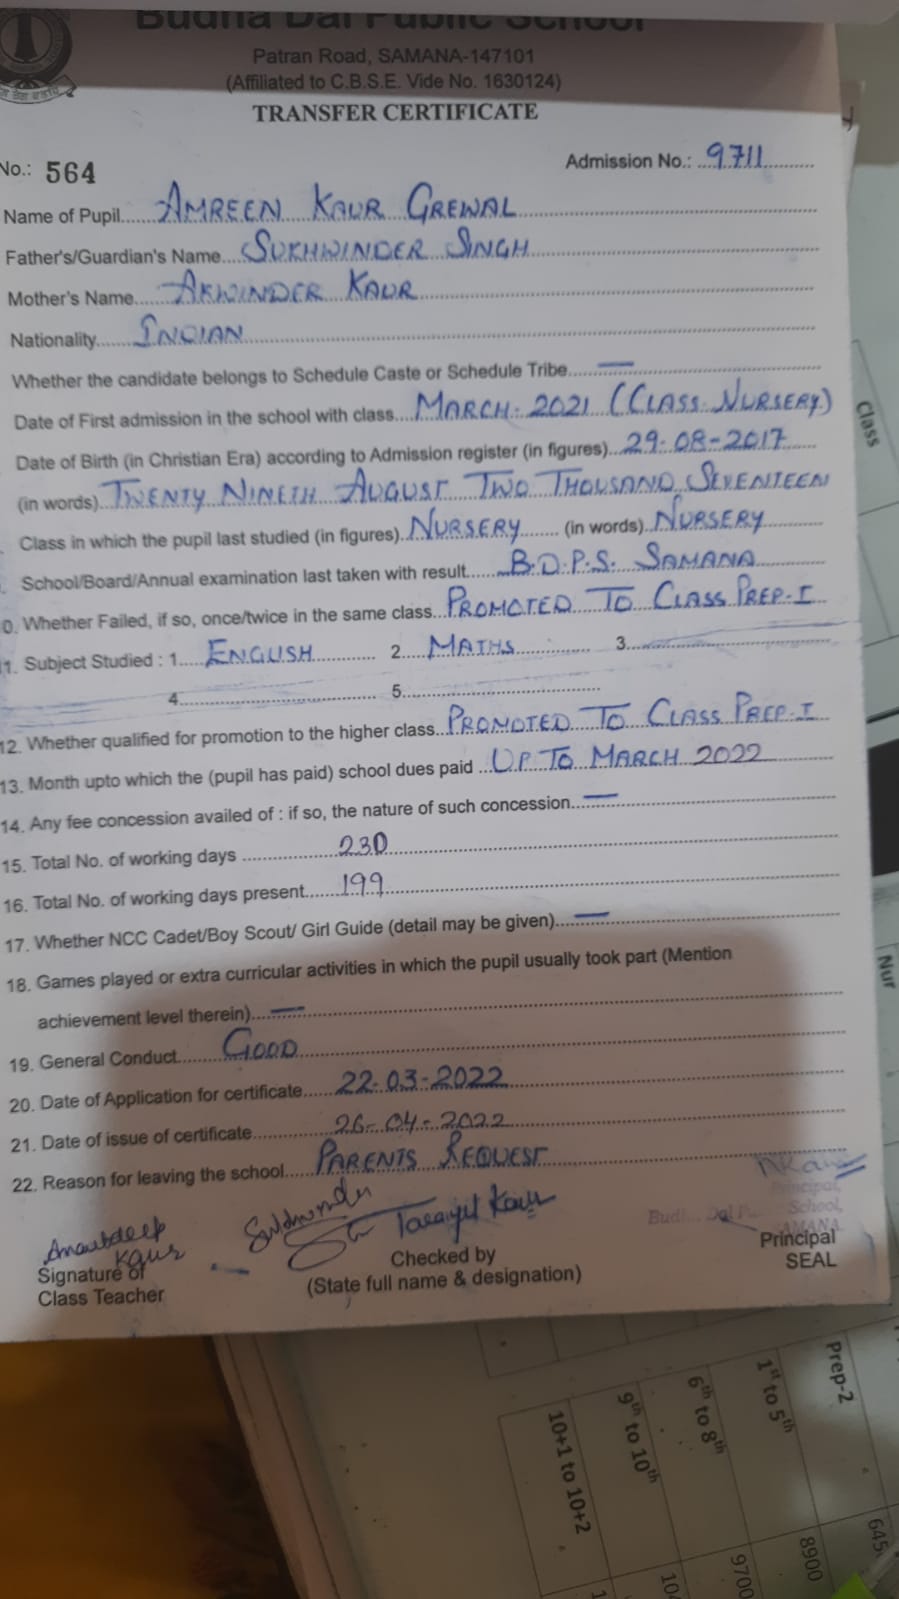 Budha Dal Public School
Patran Road, SAMANA-147101
(Affiliated to C.B.S.E. Vide No. 1630124)
TRANSFER CERTIFICATE
No.: 564
Admission No.: 9711
Name of Pupil AMREEN KAUR GREWAL
Father's/Guardian's Name SUKHWINDER SINGH
Mother's Name AKWINDER KAUR
Nationality INDIAN
Whether the candidate belongs to Schedule Caste or Schedule Tribe —
Date of First admission in the school with class MARCH-2021 (CLASS NURSERY)
Date of Birth (in Christian Era) according to Admission register (in figures) 29-08-2017
(in words) TWENTY NINETH AUGUST TWO THOUSAND SEVENTEEN
Class in which the pupil last studied (in figures) NURSERY (in words) NURSERY
School/Board/Annual examination last taken with result B.D.P.S. SAMANA
0. Whether Failed, if so, once/twice in the same class PROMOTED TO CLASS PREP-I
1. Subject Studied : 1 ENGLISH 2 MATHS 3
4 5
12. Whether qualified for promotion to the higher class PROMOTED TO CLASS PREP-I
13. Month upto which the (pupil has paid) school dues paid UP TO MARCH 2022
14. Any fee concession availed of : if so, the nature of such concession —
15. Total No. of working days 230
16. Total No. of working days present 199
17. Whether NCC Cadet/Boy Scout/ Girl Guide (detail may be given) —
18. Games played or extra curricular activities in which the pupil usually took part (Mention
achievement level therein) —
19. General Conduct GOOD
20. Date of Application for certificate 22-03-2022
21. Date of issue of certificate 26-04-2022
22. Reason for leaving the school PARENTS REQUEST
Principal,
School,
SAMANA
Kaur
Signature of
Class Teacher
Kaur
Checked by
(State full name & designation)
Principal
SEAL
Class
Nur
Prep-2
1st to 5th
6th to 8th
9th to 10th
10+1 to 10+2
8900
9700